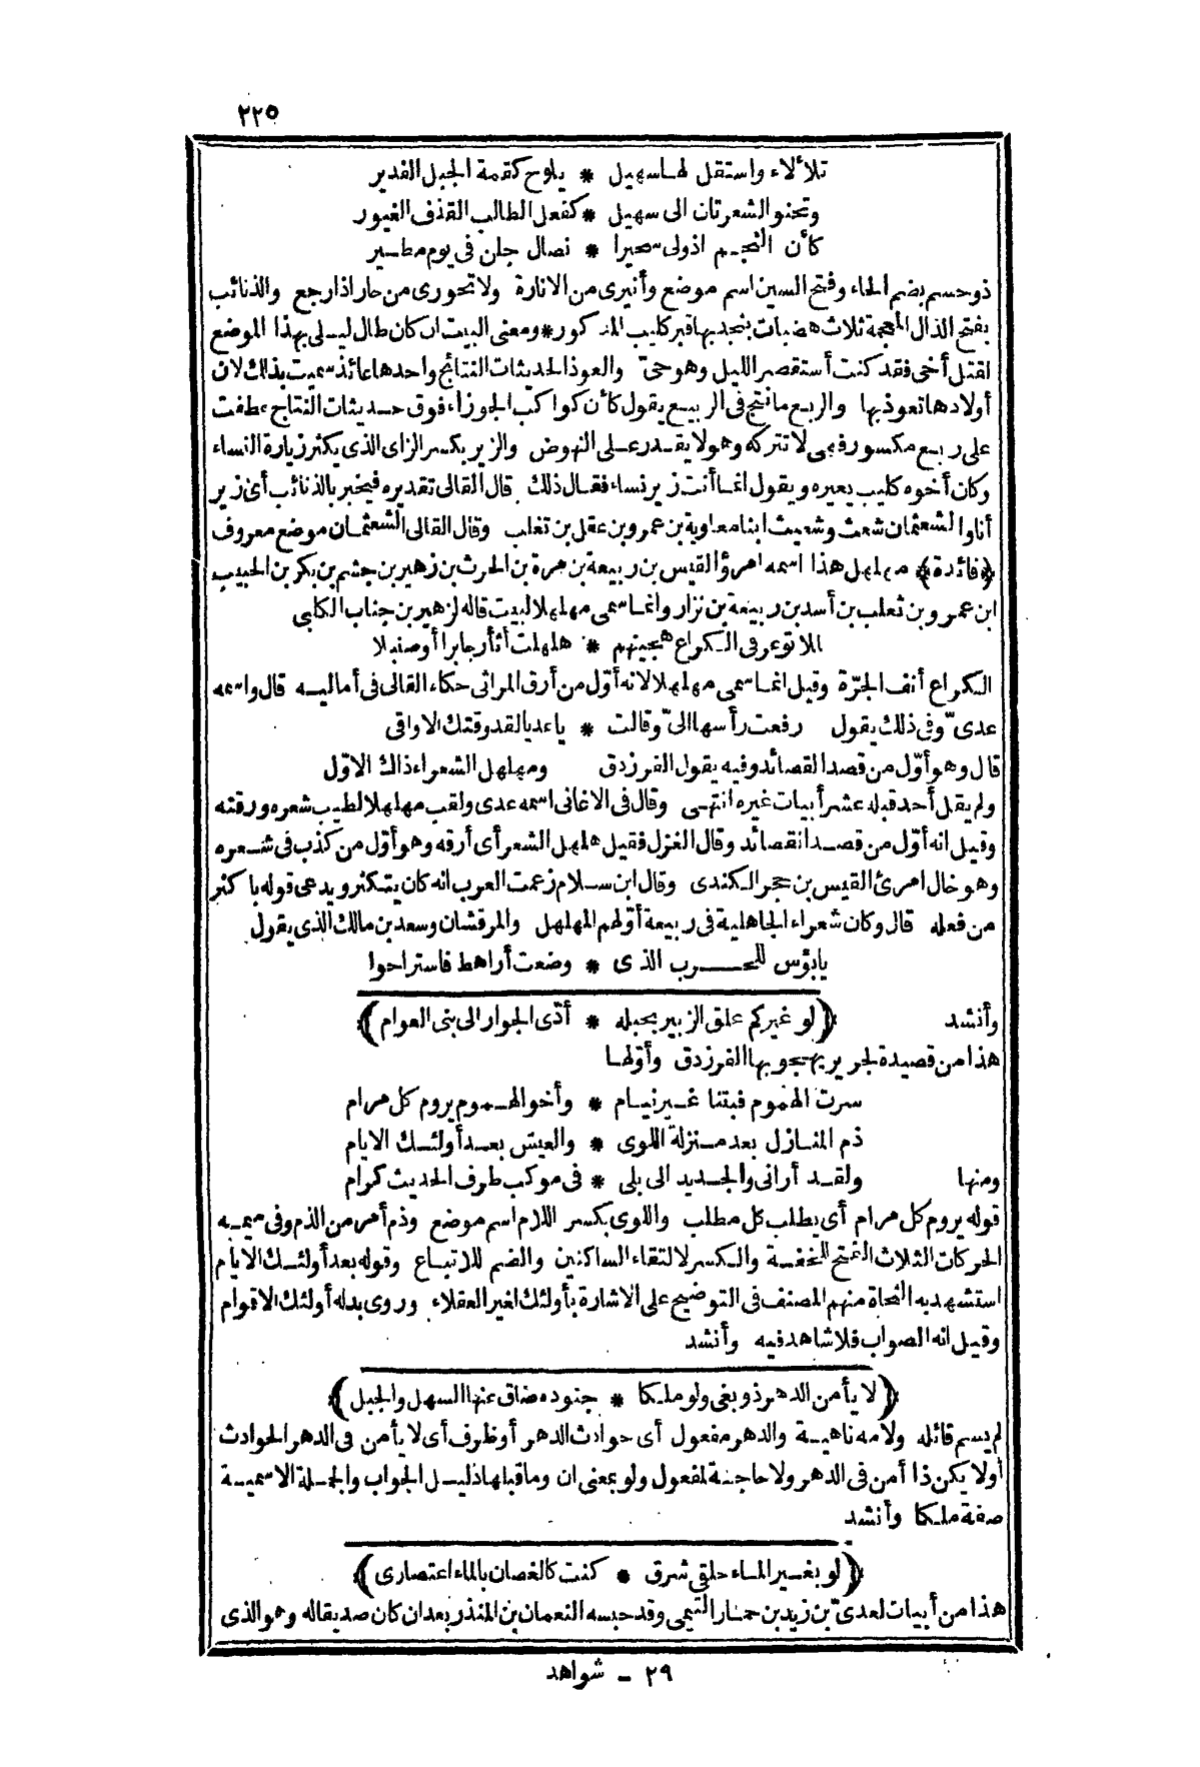 ٢٢٥
تلألاء واستقل لها سهيل * يلوح كقمة الجبل الفدير
وتحنو الشعرتان الى سهيل * كفعل الطالب القذف الغيور
كأن النجم اذولى سحيرا * نصال جلن فى يوم مطير
ذو حسم بضم الحاء وفتح السين اسم موضع وأنيرى من الانارة ولا تحورى من حار اذا رجع والذنائب
بفتح الذال المعجمة ثلاث هضبات بنجد بها قبر كليب المذكور * ومعنى البيت ان كان طال ليلى بهذا الموضع
لقتل أخى فقد كنت أستقصر الليل وهو حىّ والعوذ الحديثات النتائج واحدها عائذ سميت بذلك لان
أولادها تعوذ بها والربع ما نتج فى الربيع يقول كأن كواكب الجوزاء فوق حديثات النتاج عطفت
على ربع مكسور فهى لا تتركه وهو لا يقدر على النهوض والزير بكسر الزاى الذى يكثر زيارة النساء
وكان أخوه كليب يعيره ويقول انما أنت زير نساء فقال ذلك قال القالى تقديره فيخبر بالذنائب أى زير
أنا والشعثمان شعث وشعيث ابنا معاوية بن عمرو بن عقل بن تغلب وقال القالى الشعثمان موضع معروف
﴿فائدة﴾ مهلهل هذا اسمه امرؤ القيس بن ربيعة بن مرة بن الحرث بن زهير بن جشم بن بكر بن الحبيب
ابن عمرو بن ثعلب بن أسد بن ربيعة بن نزار وانما سمى مهلهلا لبيت قاله لزهير بن جناب الكلبى
لما توعر فى الكراع هجينهم * هلهلت أثأر جابرا أو صنبلا
الكراع أنف الحرّة وقيل انما سمى مهلهلا لانه أوّل من أرق المراثى حكاه القالى فى أماليه قال واسمه
عدىّ وفى ذلك يقول رفعت رأسها الىّ وقالت * يا عديا لقد وقتك الاواقى
قال وهو أوّل من قصد القصائد وفيه يقول الفرزدق ومهلهل الشعراء ذاك الاوّل
ولم يقل أحد قبله عشر أبيات غيره انتهى وقال فى الاغانى اسمه عدى ولقب مهلهلا لطيب شعره ورقته
وقيل انه أوّل من قصد القصائد وقال الغزل فقيل هلهل الشعر أى أرقه وهو أوّل من كذب فى شعره
وهو خال امرئ القيس بن حجر الكندى وقال ابن سلام زعمت العرب انه كان يتكثر ويدعى قوله باكثر
من فعله قال وكان شعراء الجاهلية فى ربيعة أوّلهم المهلهل والمرقشان وسعد بن مالك الذى يقول
يا بؤس للحرب الذى * وضعت أراهط فاستراحوا
وأنشد ﴿لو غيركم علق الزبير بحبله * أدّى الجوار الى بنى العوام﴾
هذا من قصيدة لجرير يهجو بها الفرزدق وأوّلها
سرت الهموم فبتنا غير نيام * وأخو الهموم يروم كل مرام
ذم المنازل بعد منزلة اللوى * والعيش بعد أولئك الايام
ومنها ولقد أرانى والجديد الى بلى * فى موكب طرف الحديث كرام
قوله يروم كل مرام أى يطلب كل مطلب واللوى بكسر اللام اسم موضع وذم أمر من الذم وفى ميمه
الحركات الثلاث الفتح للخفة والكسر لالتقاء الساكنين والضم للاتباع وقوله بعد أولئك الايام
استشهد به النحاة منهم المصنف فى التوضيح على الاشارة بأولئك لغير العقلاء وروى بدله أولئك الاقوام
وقيل انه الصواب فلا شاهد فيه وأنشد
﴿لا يأمن الدهر ذو بغى ولو ملكا * جنوده ضاق عنها السهل والجبل﴾
لم يسم قائله ولامه ناهية والدهر مفعول أى حوادث الدهر أو ظرف أى لا يأمن فى الدهر الحوادث
أو لا يكن ذا أمن فى الدهر ولا حاجة لمفعول ولو بمعنى ان وما قبلها دليل الجواب والجملة الاسمية
صفة ملكا وأنشد
﴿لو بغير الماء حلقى شرق * كنت كالغصان بالماء اعتصارى﴾
هذا من أبيات لعدىّ بن زيد بن حمار التميمى وقد حبسه النعمان بن المنذر بعد ان كان صديقا له وهو الذى
٢٩ - شواهد